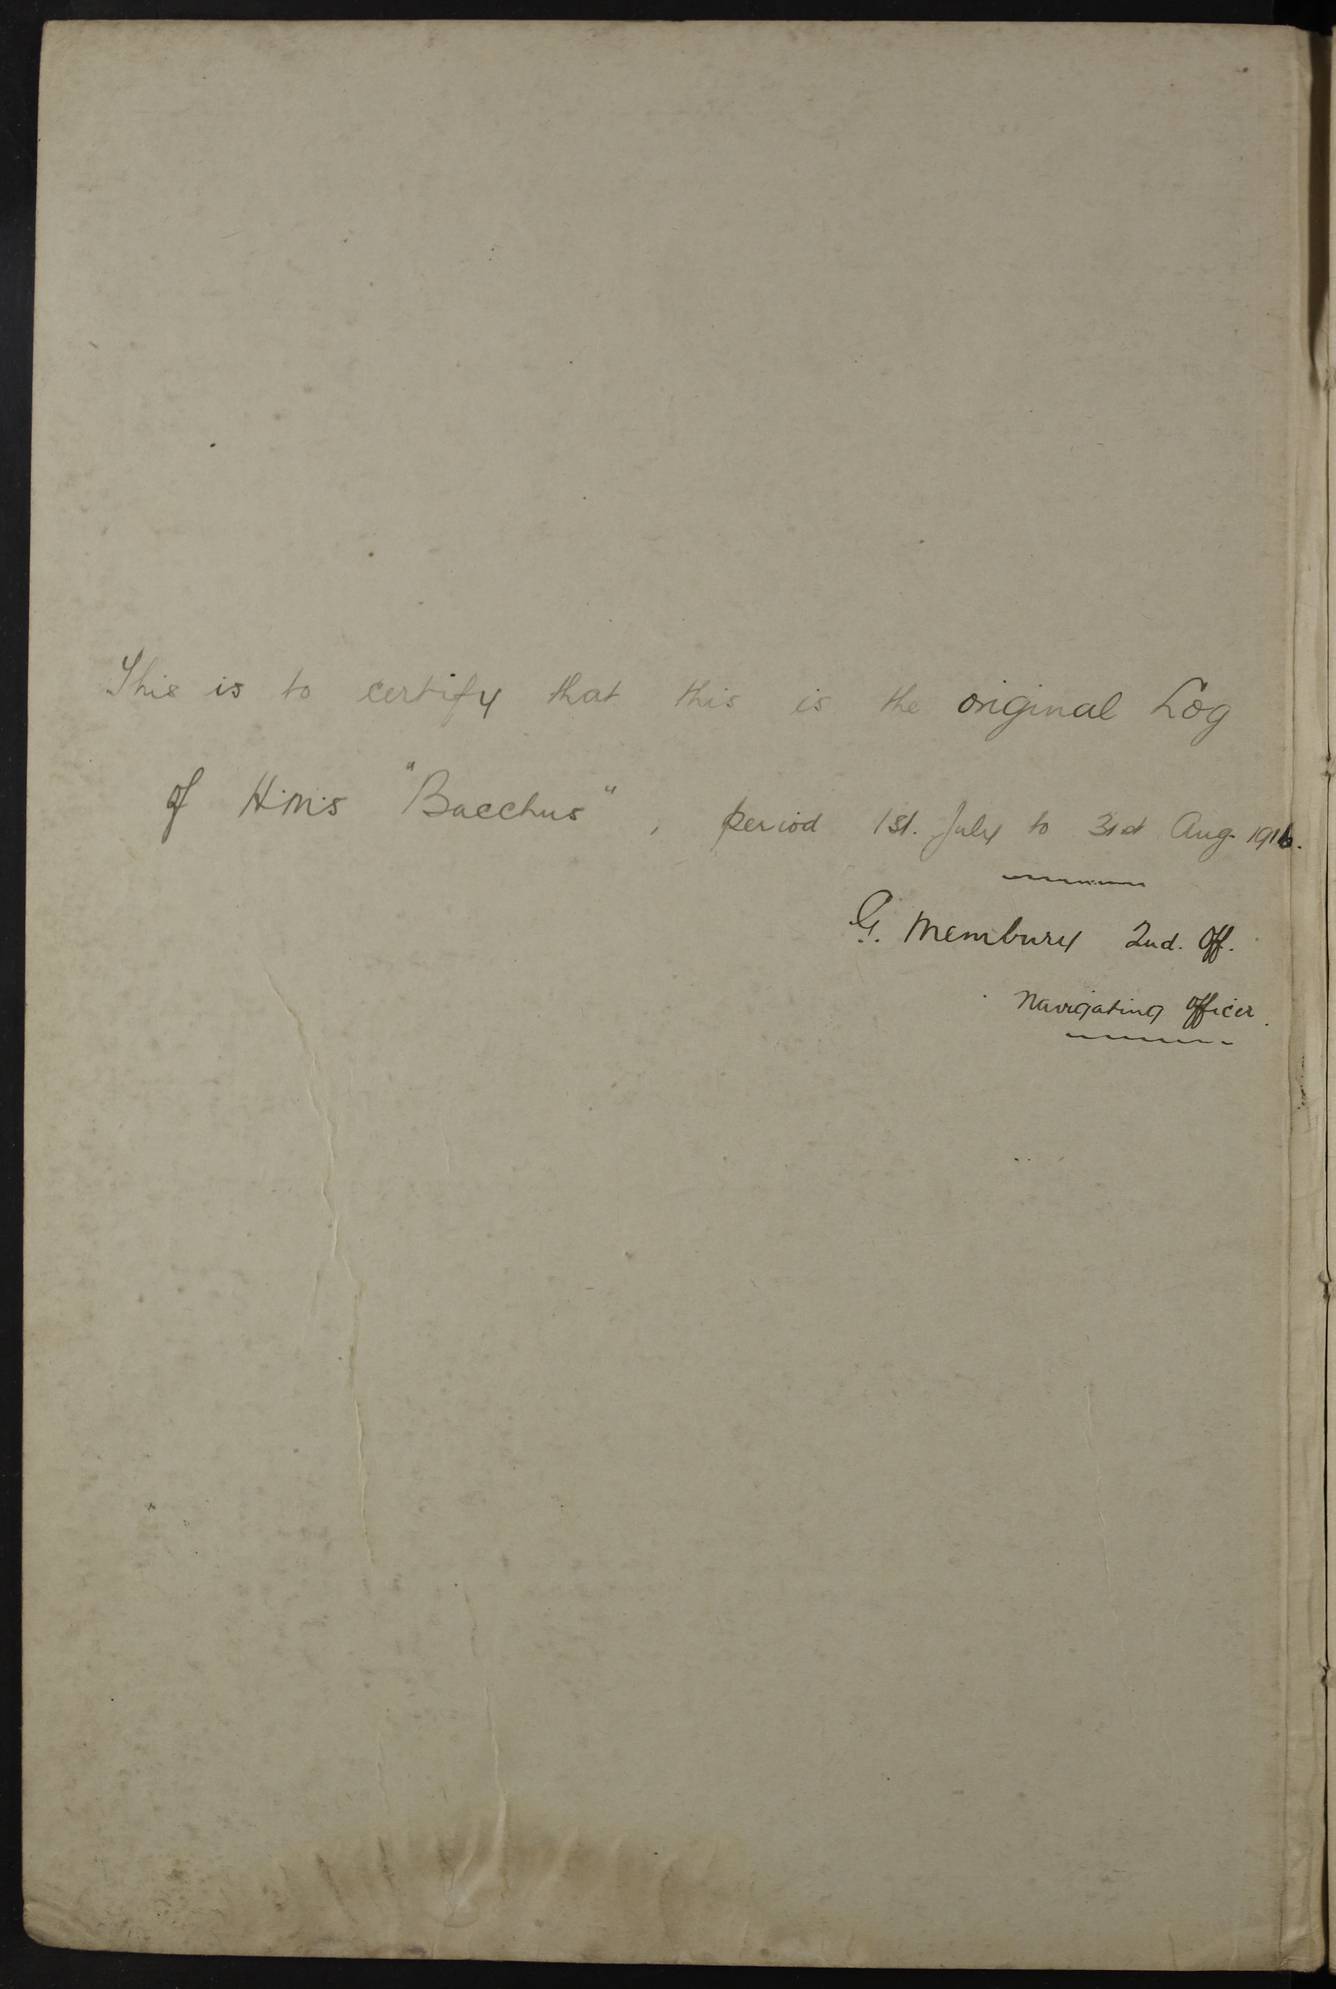 This is to certify that this is the original Log
of H.M.S "Bacchus", period 1st. July to 31st Aug. 1916.
G. Membury 2nd. Off.
Navigating Officer.